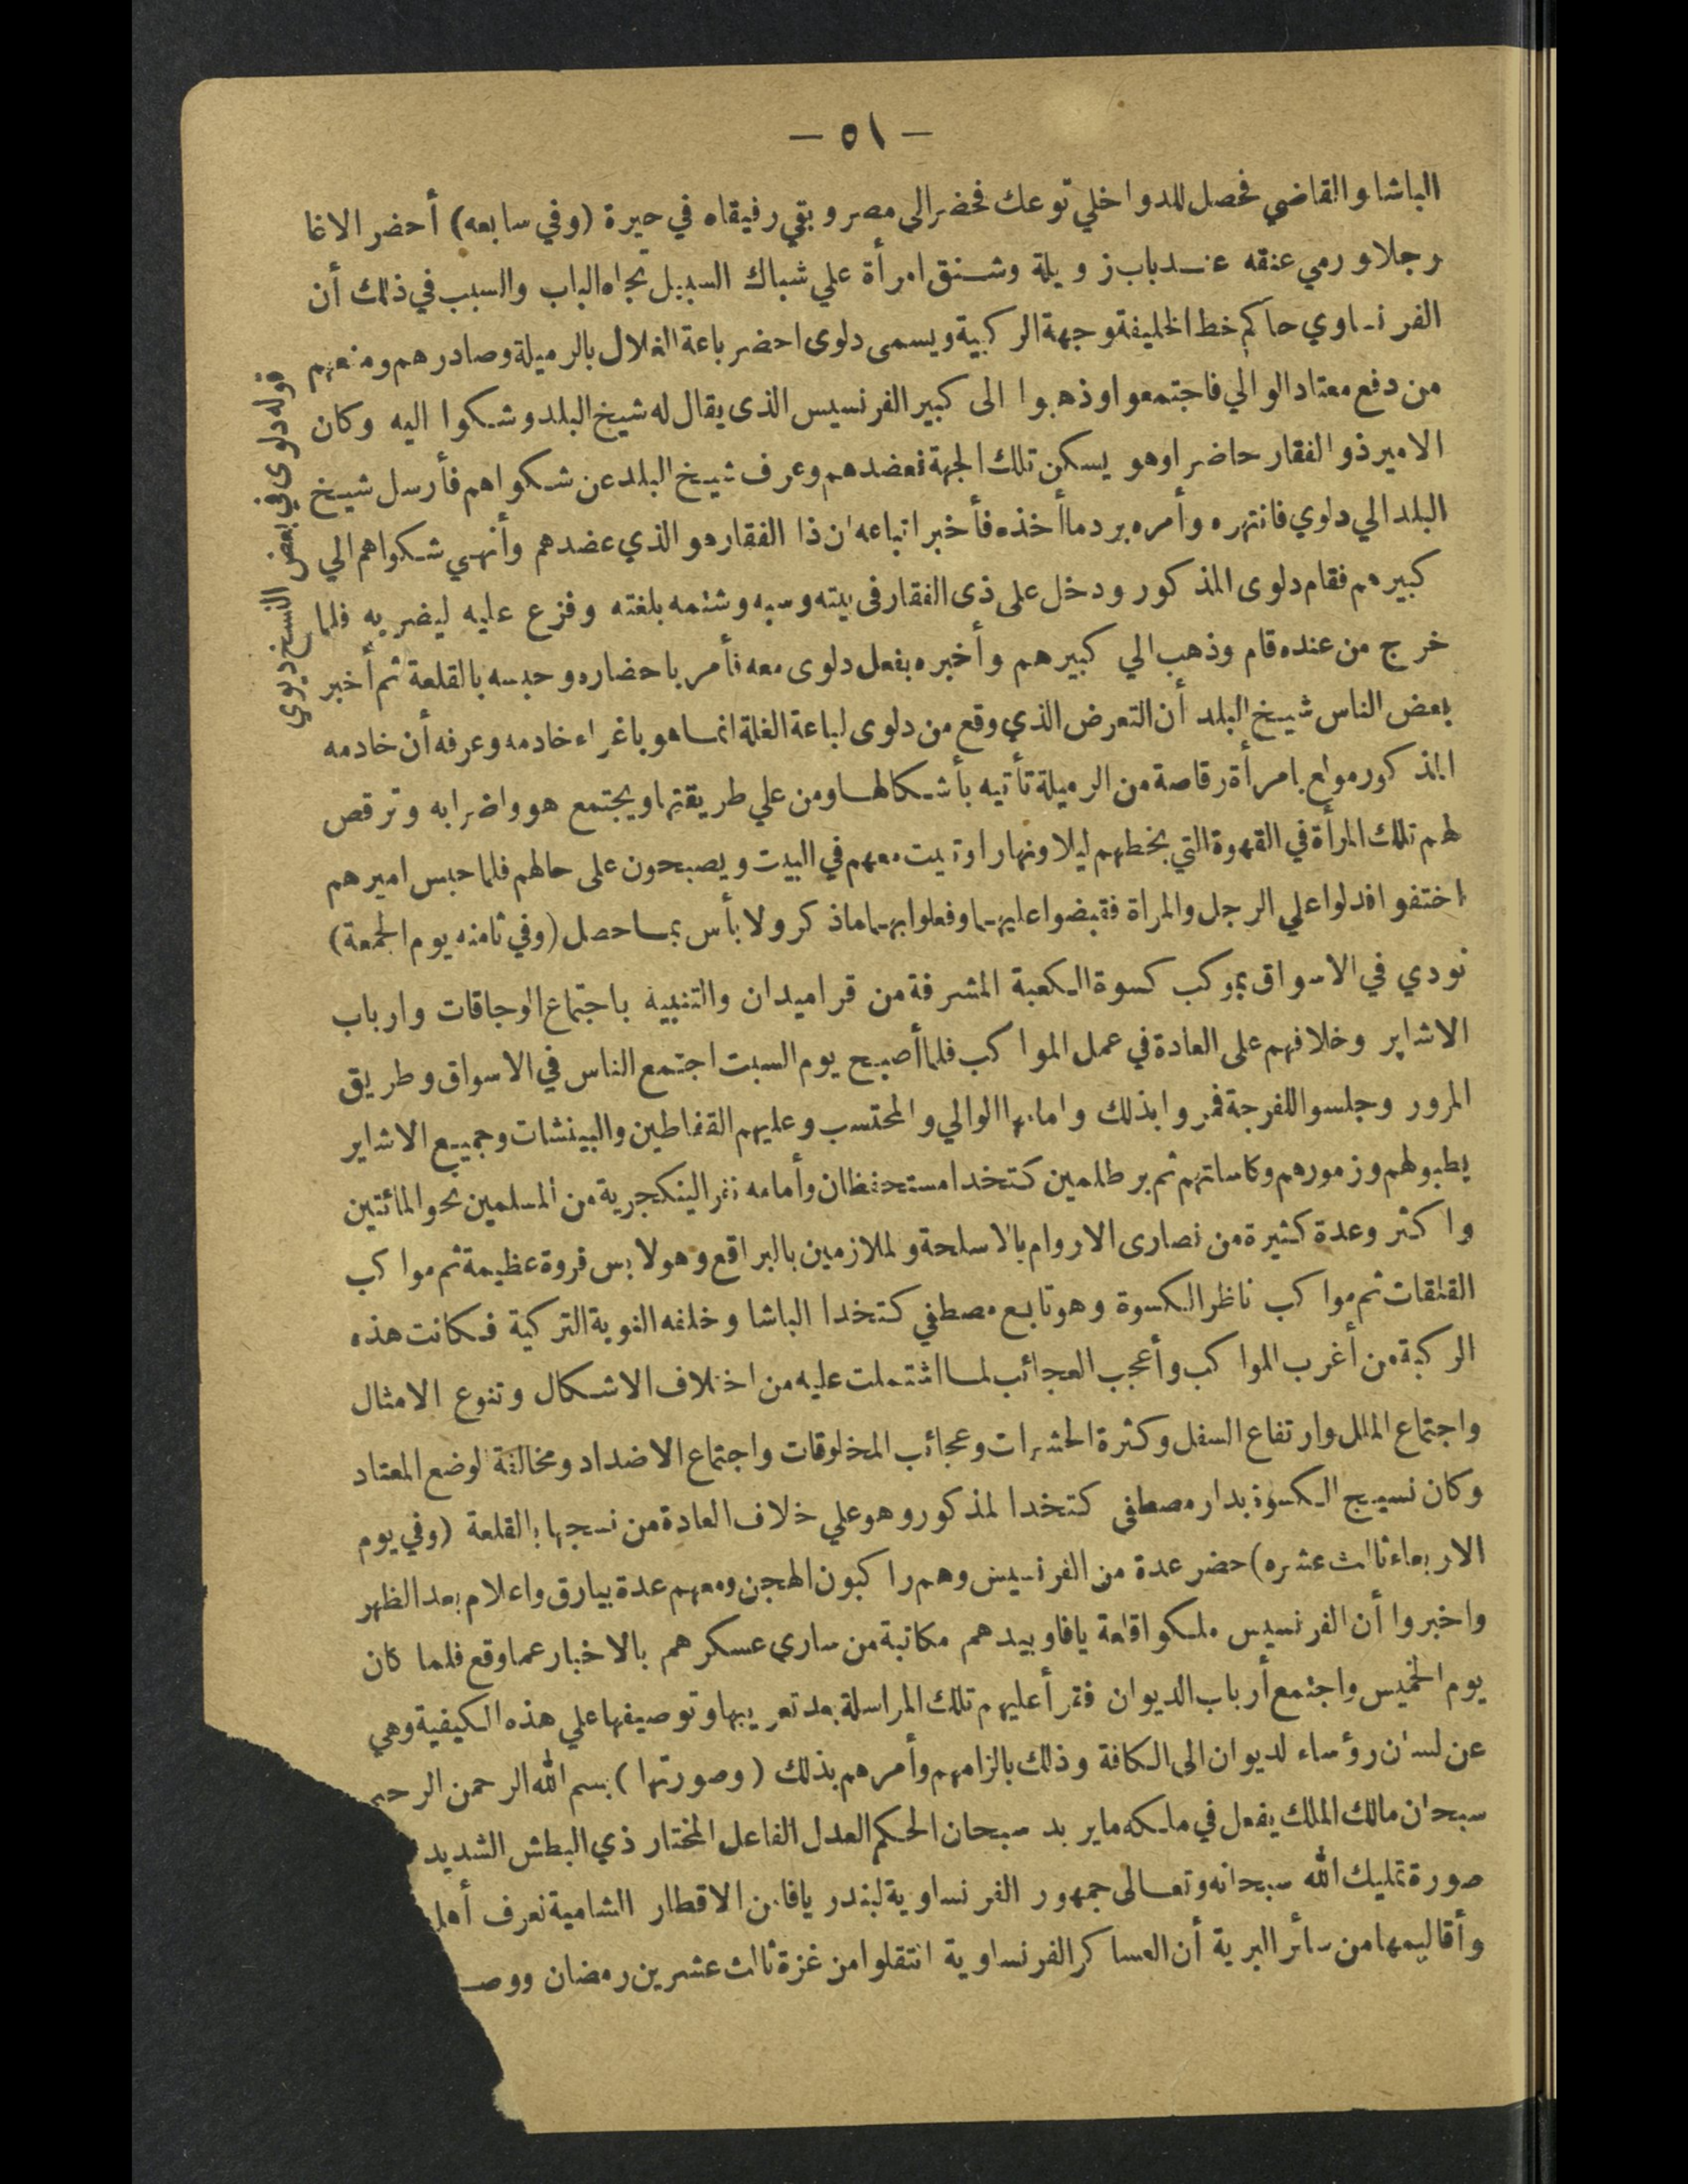 — ٥١ —
الباشا والقاضي فحصل للدواخلي توعك فحضر الى مصر وبقي رفيقاه في حيرة (وفي سابعه) أحضر الاغا
رجلا ورمي عنقه عند باب زويلة وشنق امرأة علي شباك السبيل تجاه الباب والسبب في ذلك أن
الفرنساوي حاكم خط الخليفة وجهة الركبية ويسمى دلوى احضر باعة الغلال بالرميلة وصادرهم ومنعهم
من دفع معتاد الوالي فاجتمعوا وذهبوا الى كبير الفرنسيس الذى يقال له شيخ البلد وشكوا اليه وكان
الامير ذو الفقار حاضرا وهو يسكن تلك الجهة فعضدهم وعرف شيخ البلد عن شكواهم فأرسل شيخ
البلد الي دلوي فانتهره وأمره برد ما أخذه فأخبر اتباعه ان ذا الفقار هو الذي عضدهم وأنهي شكواهم الي
كبيرهم فقام دلوى المذكور ودخل على ذى الفقار فى بيته وسبه وشتمه بلغته وفزع عليه ليضربه فلما
خرج من عنده قام وذهب الي كبيرهم وأخبره بفعل دلوى معه فأمر باحضاره وحبسه بالقلعة ثم أخبر
بعض الناس شيخ البلد أن التعرض الذي وقع من دلوى لباعة الغلة انما هو باغراء خادمه وعرفه أن خادمه
المذكور مولع بامرأة رقاصة من الرميلة تأتيه بأشكالها ومن علي طريقتها ويجتمع هو واضرابه وترقص
لهم تلك المرأة في القهوة التي بخطهم ليلا ونهارا وتبيت معهم في البيت ويصبحون على حالهم فلما حبس اميرهم
اختفوا فدلوا علي الرجل والمراة فقبضوا عليهما وفعلوا بهما ماذكر ولا بأس بما حصل (وفي ثامنه يوم الجمعة)
نودي في الاسواق بموكب كسوة الكعبة المشرفة من قراميدان والتنبيه باجتماع الوجاقات وارباب
الاشاير وخلافهم على العادة في عمل المواكب فلما أصبح يوم السبت اجتمع الناس في الاسواق وطريق
المرور وجلسوا للفرجة فمروا بذلك وامامها الوالي والمحتسب وعليهم القفاطين والبينشات وجميع الاشاير
بطبولهم وزمورهم وكاساتهم ثم برطلمين كتخدا مستحفظان وأمامه نفر الينكجرية من المسلمين نحو المائتين
واكثر وعدة كثيرة من نصارى الاروام بالاسلحة والملازمين بالبراقع وهو لابس فروة عظيمة ثم مواكب
القلقات ثم مواكب ناظر الكسوة وهو تابع مصطفي كتخدا الباشا وخلفه النوبة التركية فكانت هذه
الركبة من أغرب المواكب وأعجب العجائب لما اشتملت عليه من اختلاف الاشكال وتنوع الامثال
واجتماع الملل وارتفاع السفل وكثرة الحشرات وعجائب المخلوقات واجتماع الاضداد ومخالفة لوضع المعتاد
وكان نسيج الكسوة بدار مصطفى كتخدا لمذكور وهو علي خلاف العادة من نسجها بالقلعة (وفي يوم
الاربعاء ثالث عشره) حضر عدة من الفرنسيس وهم راكبون الهجن ومعهم عدة بيارق واعلام بعد الظهر
واخبروا أن الفرنسيس ملكوا قلعة يافا وبيدهم مكاتبة من ساري عسكرهم بالاخبار عما وقع فلما كان
يوم الخميس واجتمع أرباب الديوان فقرأ عليهم تلك المراسلة بعد تعريبها وتوصيفها علي هذه الكيفية وهي
عن لسان رؤساء لديوان الى الكافة وذلك بالزامهم وأمرهم بذلك (وصورتها) بسم الله الرحمن الرحيم
سبحان مالك الملك يفعل في ملكه مايريد سبحان الحكم العدل الفاعل المختار ذي البطش الشديد
صورة تمليك الله سبحانه وتعالى جمهور الفرنساوية لبندر يافا من الاقطار الشامية نعرف أهل
وأقاليمها من سائر البرية أن العساكر الفرنساوية انتقلوا من غزة ثالث عشرين رمضان ووصـ
قوله دلوى في بعض النسخ ديوي